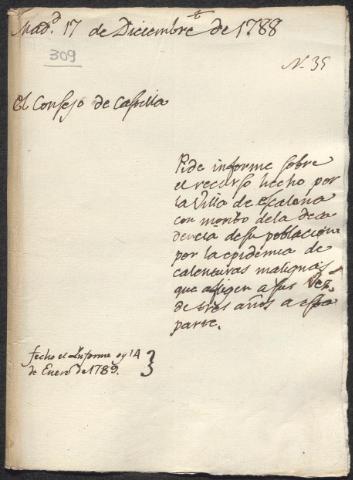 Mad.d 17 de Diciembre de 1788
309
N.35
El Consejo de Castilla
Pide informe sobre
el recurso hecho por
la Villa de Escalona
con motibo de la deca
dencia de su poblacion
por la epidemia de
calenturas malignas
que afligen a sus Vez.s
de tres años a esta
parte.
fecho el Informe oy 14
de Enero de 1789.